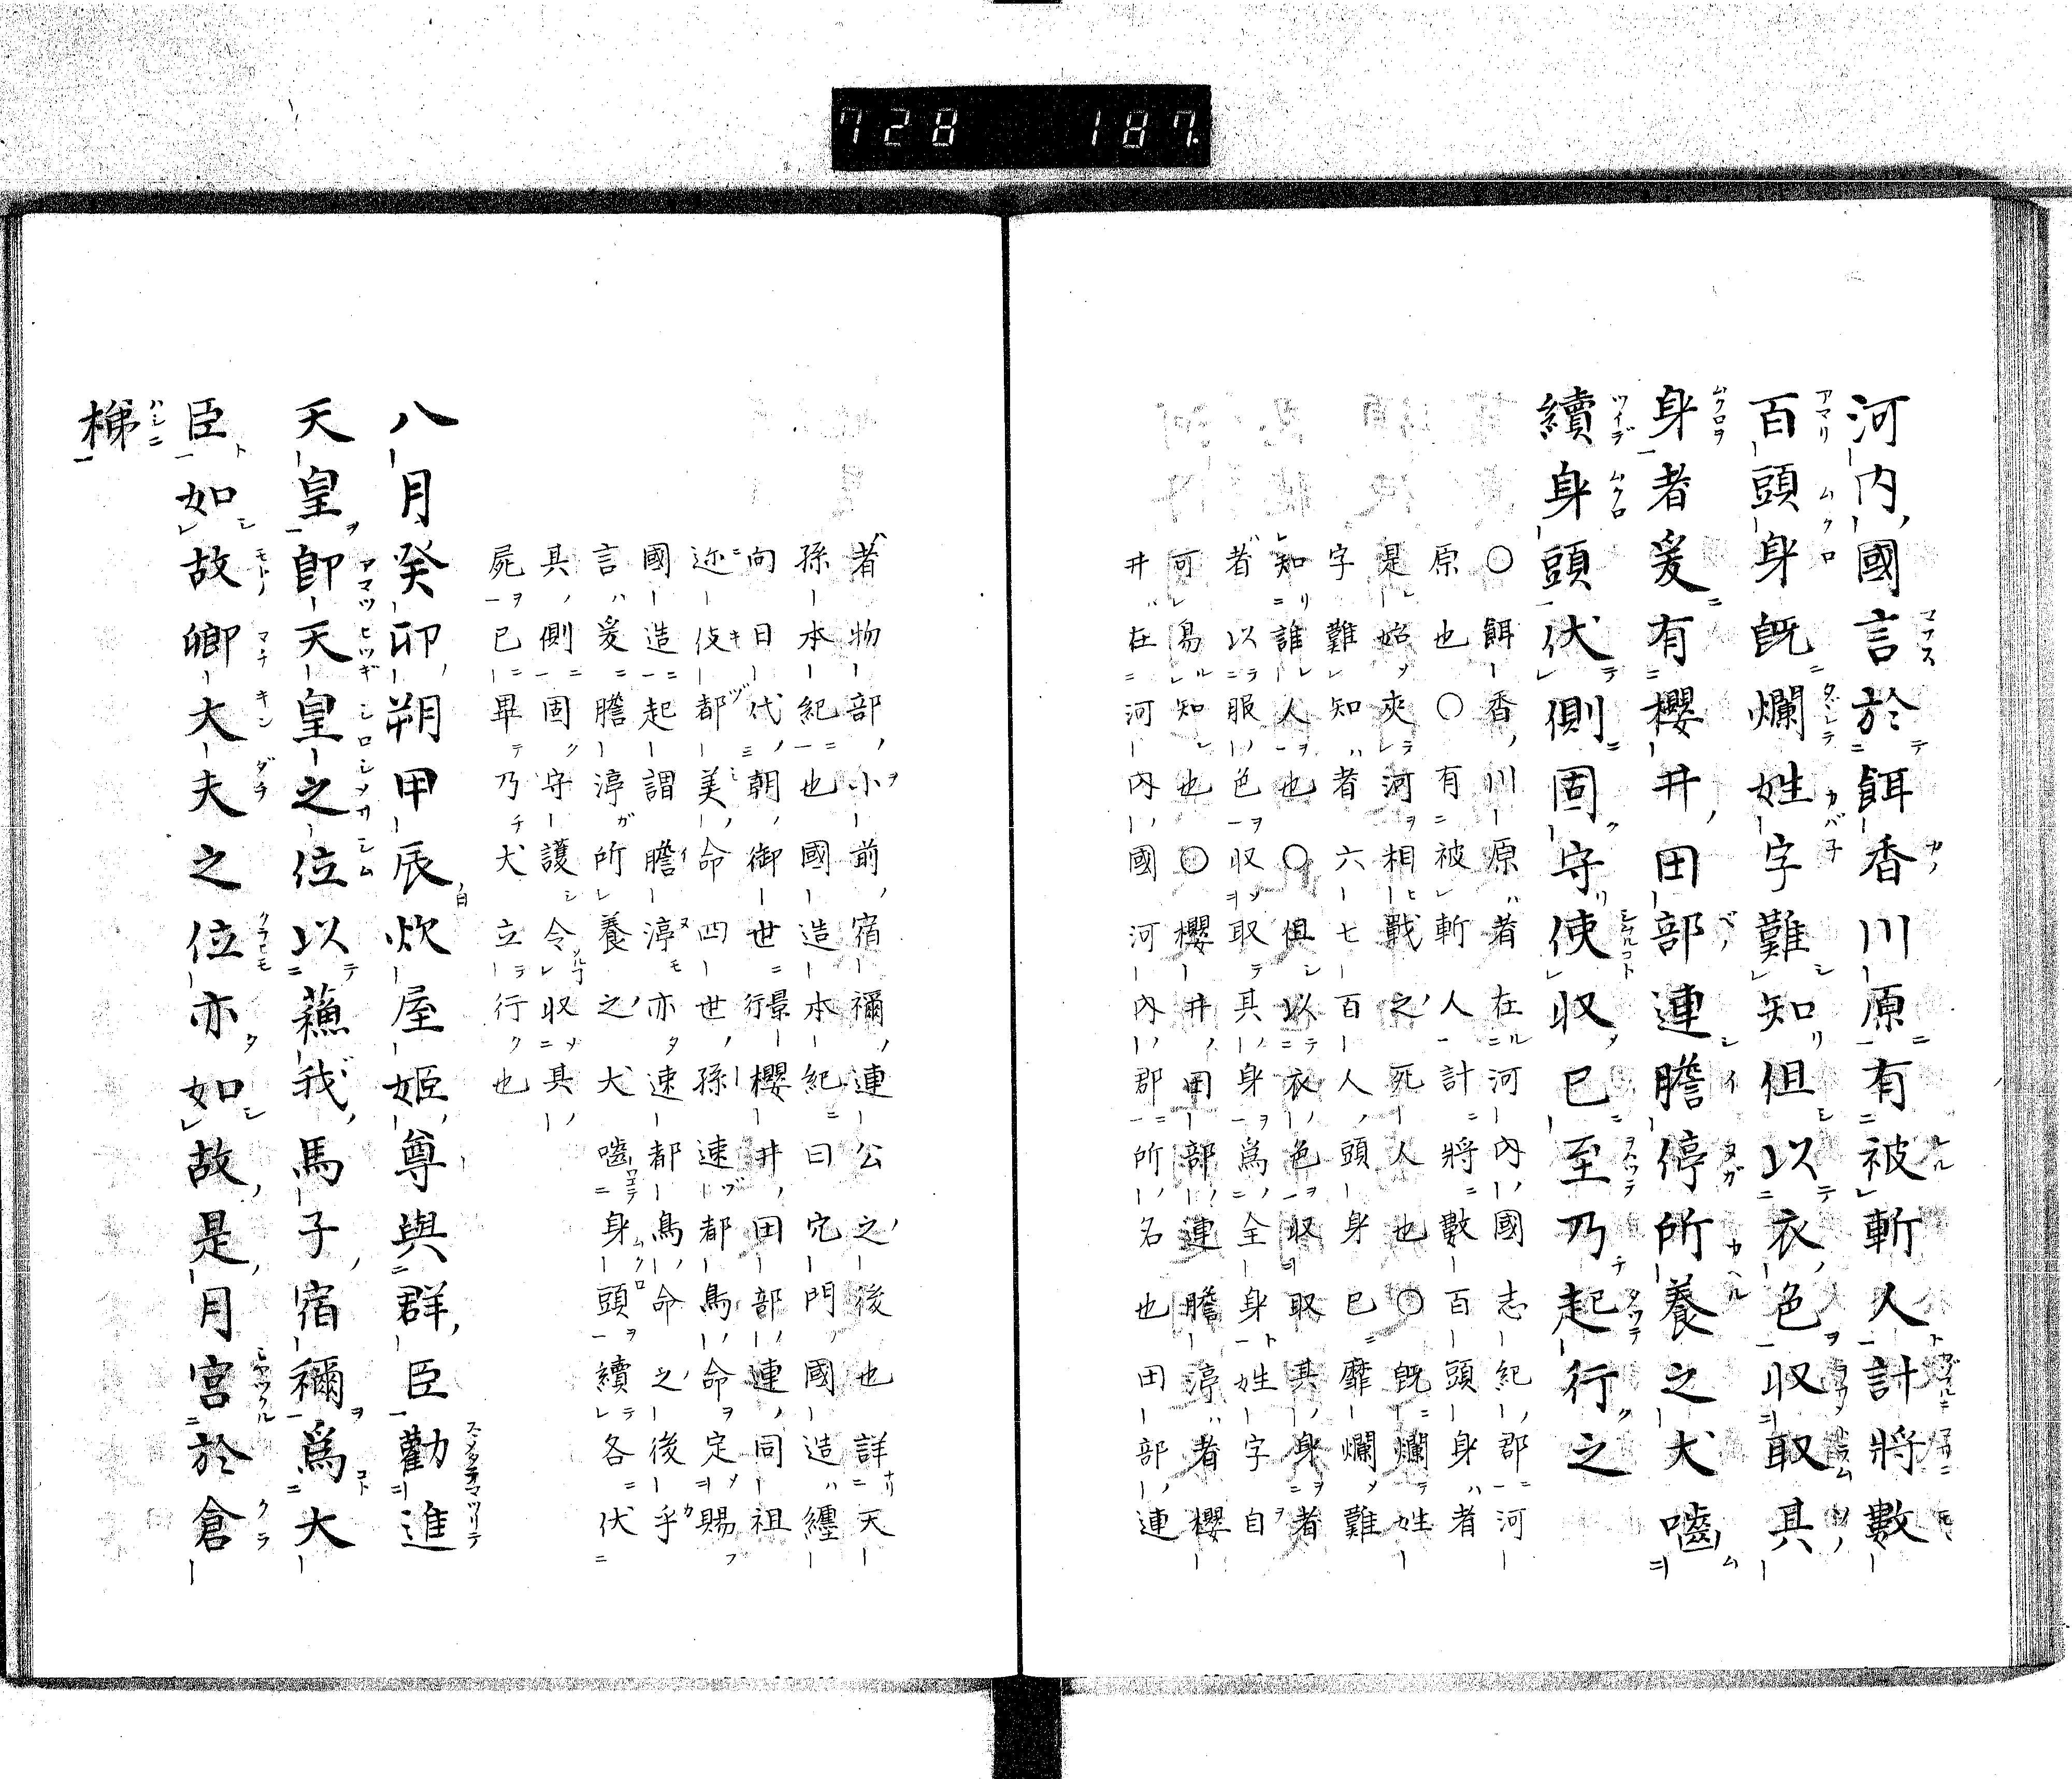 728 187.
河内國言於餌香川原有被斬人計將數
百頭身既爛姓字難知但以衣色収取其
身者爰有櫻井田部連膽停所養之犬嚙
續身頭伏側固守使収已至乃起行之
〇餌香川原者在河内國志紀郡河
原也〇有被斬人計將數百頭身者
是始夾河相戰之死人也〇既爛姓
字難知者六七百人頭身已靡爛難
知誰人也〇但以衣色収取其身者
者以服色収取其身爲全身姓字自
可易知也〇櫻井田部連膽渟者櫻
井在河内國河内郡所名也田部連
者物部小前宿禰連公之後也詳天
孫本紀也國造本紀曰穴門國造纏
向日代朝御世景行櫻井田部連同祖
迩伎都美命四世孫速都鳥命定賜
國造起謂膽渟亦速都鳥命之後乎
言爰膽渟所養之犬嚙身頭續各伏
其側固守護令収其
屍已畢乃犬立行也
八月癸卯朔甲辰炊屋姬尊與群臣勸進
天皇卽天皇之位以蘓我馬子宿禰爲大
臣如故卿大夫之位亦如故是月宮於倉
梯